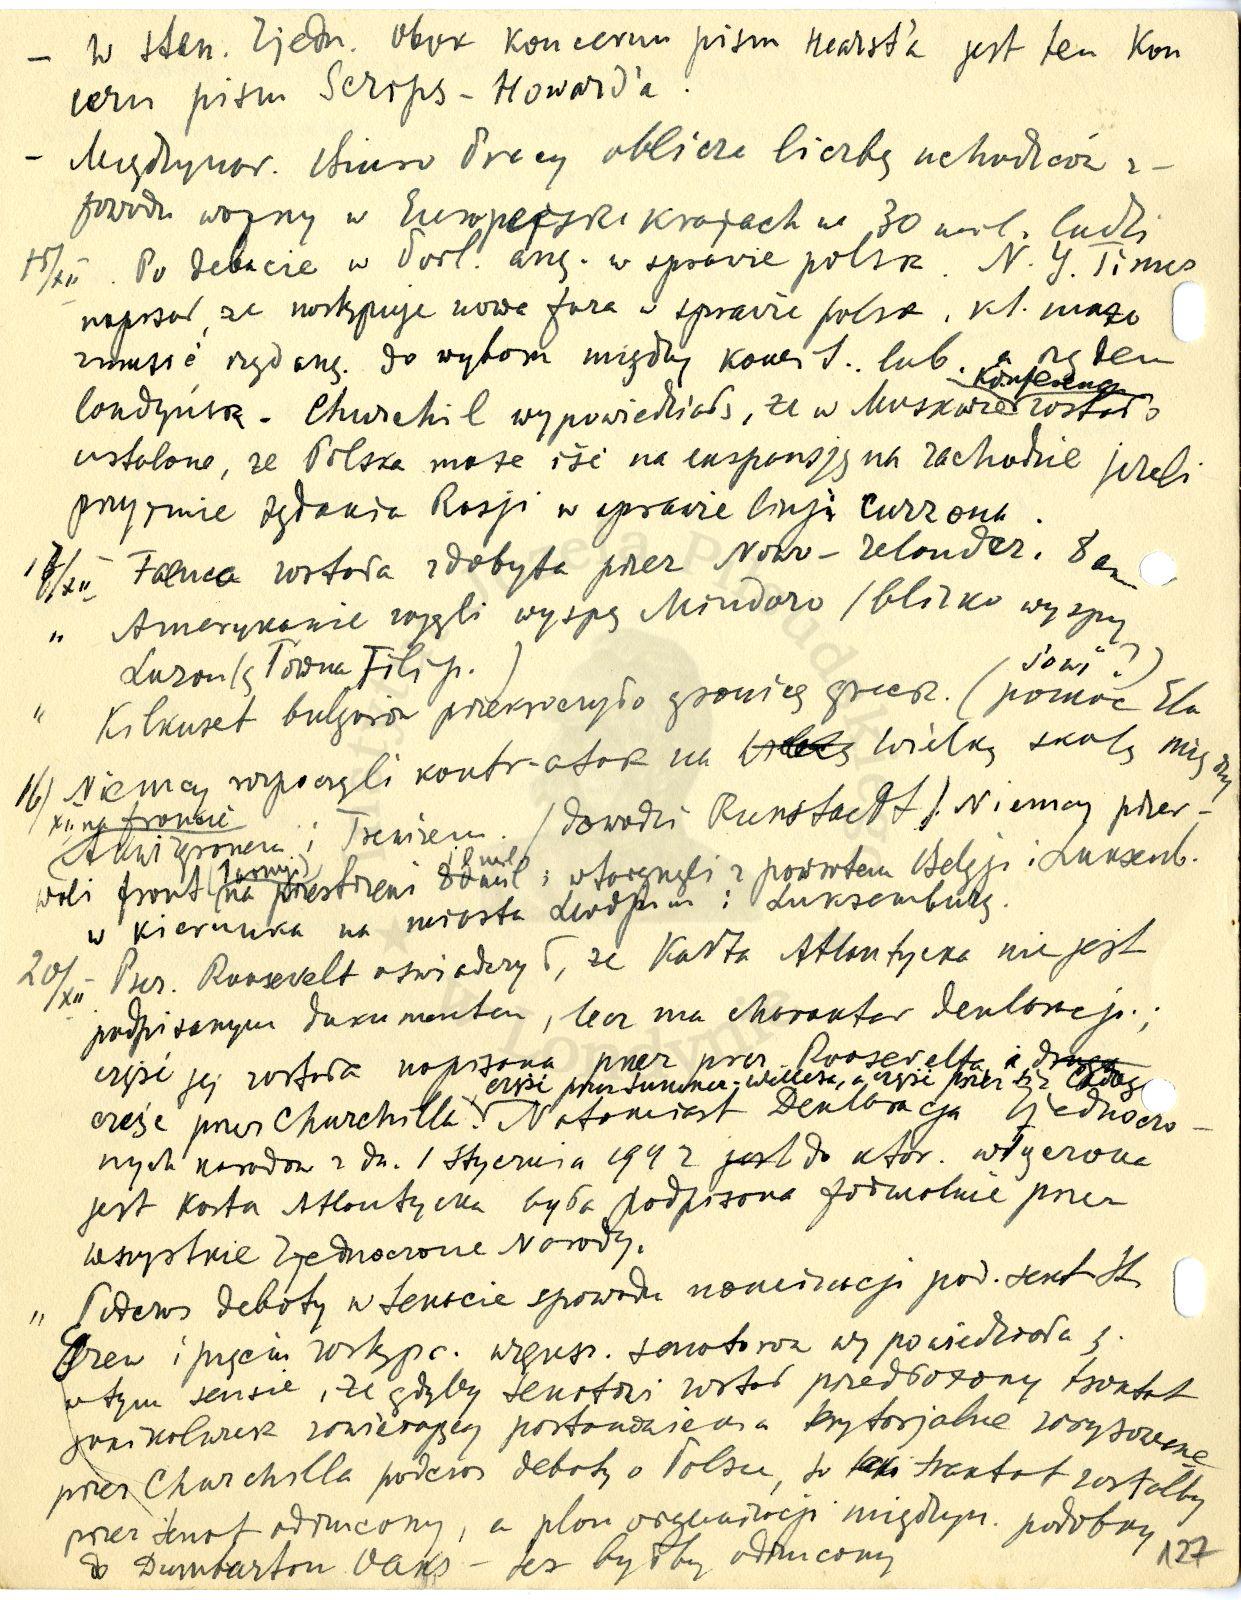 – W Sten. Zjedn. obok koncernu pism Hearst'a jest ten kon
cern pism Scrips – Howard'a.
– Międzynar. Biuro Pracy oblicza liczbę uchodźców z –
powodu wojny w Europejski krajach na 30 mil. ludzi
15/XII. Po debacie w Parl. ang. w sprawie polsk. N. Y. Times
napisał, ze następuje nowa faza w sprawie polsk, kt. może
zmusić rząd ang. do wyboru między komit. lub. a rządem
londyńsk. – Churchil wypowiedział, że w Moskwie konferencja została
ustalone, ze Polska może iść na ekspansję na zachodzie jeżeli
przyjmie żądania Rosji w sprawie linji Curzona.
17/XII Faenca została zdobyta przez Nowo – zelandcz. 8 am
" Amerykanie zajęli wyspę Mindoro (blizko wyspy
Luzon (główna Filip.)
" Kilkuset bulgarów przekroczyło granicę greck. (pomoc Ela
sowi?)
16/XII Niemcy rozpoczęli kontr-atak na wielką skalę między
na froncie
Akwizgranem i Trewirem. (dowodzi Runstaedt). Niemcy przer –
wali front (1 armji) na przestrzeni 80 mil i wtargnęli z powrotem Belgji i Luksemb.
w kierunku na miasta Leodjum i Luksemburg.
20/XII – Prez. Roosevelt oświadczył, ze Karta Atlantycka nie jest
podpisanym dokumentem, lecz ma charakter deklaracji.;
część jej została napisana przez prez. Roosevelta a druga
część przez Sumner-Wellesa, a część przez sir Cadog
część przez Churchilla. Natomiast Deklaracja Zjednoczo –
nych narodów z dn. 1 Stycznia 1942 jest do któr. włączona
jest Karta Atlantycka była podpisana formalnie przez
wszystkie Zjednoczone Narody.
" Podczas debaty w Senacie spowodu nominacji pod. sekt St
Grew i pięciu zastępc. większ. senatorów wypowiedziała s.
w tym sensie, że gdyby Senatowi został przedłożony traktat
jakikolwiek zawierający postanowienia terytorjalne zarysowane
przez Churchilla podczas debaty o Polsce, to taki traktat zostałby
przez senat odrzucony, a plan organizacji międzyn. podobny
do Dumbarton Oaks – tez byłby odrzucony
127